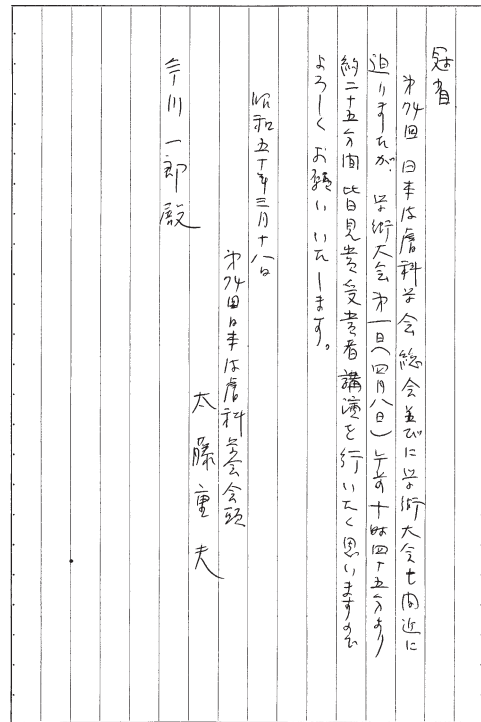 冠省
第74回 日本皮膚科学会総会並びに学術大会も間近に
迫りましたが、学術大会第一日(四月八日)午前十時四十五分より
約二十五分間 皆見賞受賞者講演を行いたく思いますので
よろしくお願いいたします。
昭和五十年三月十八日
第74回日本皮膚科学会会頭
太藤重夫
今川一郎殿